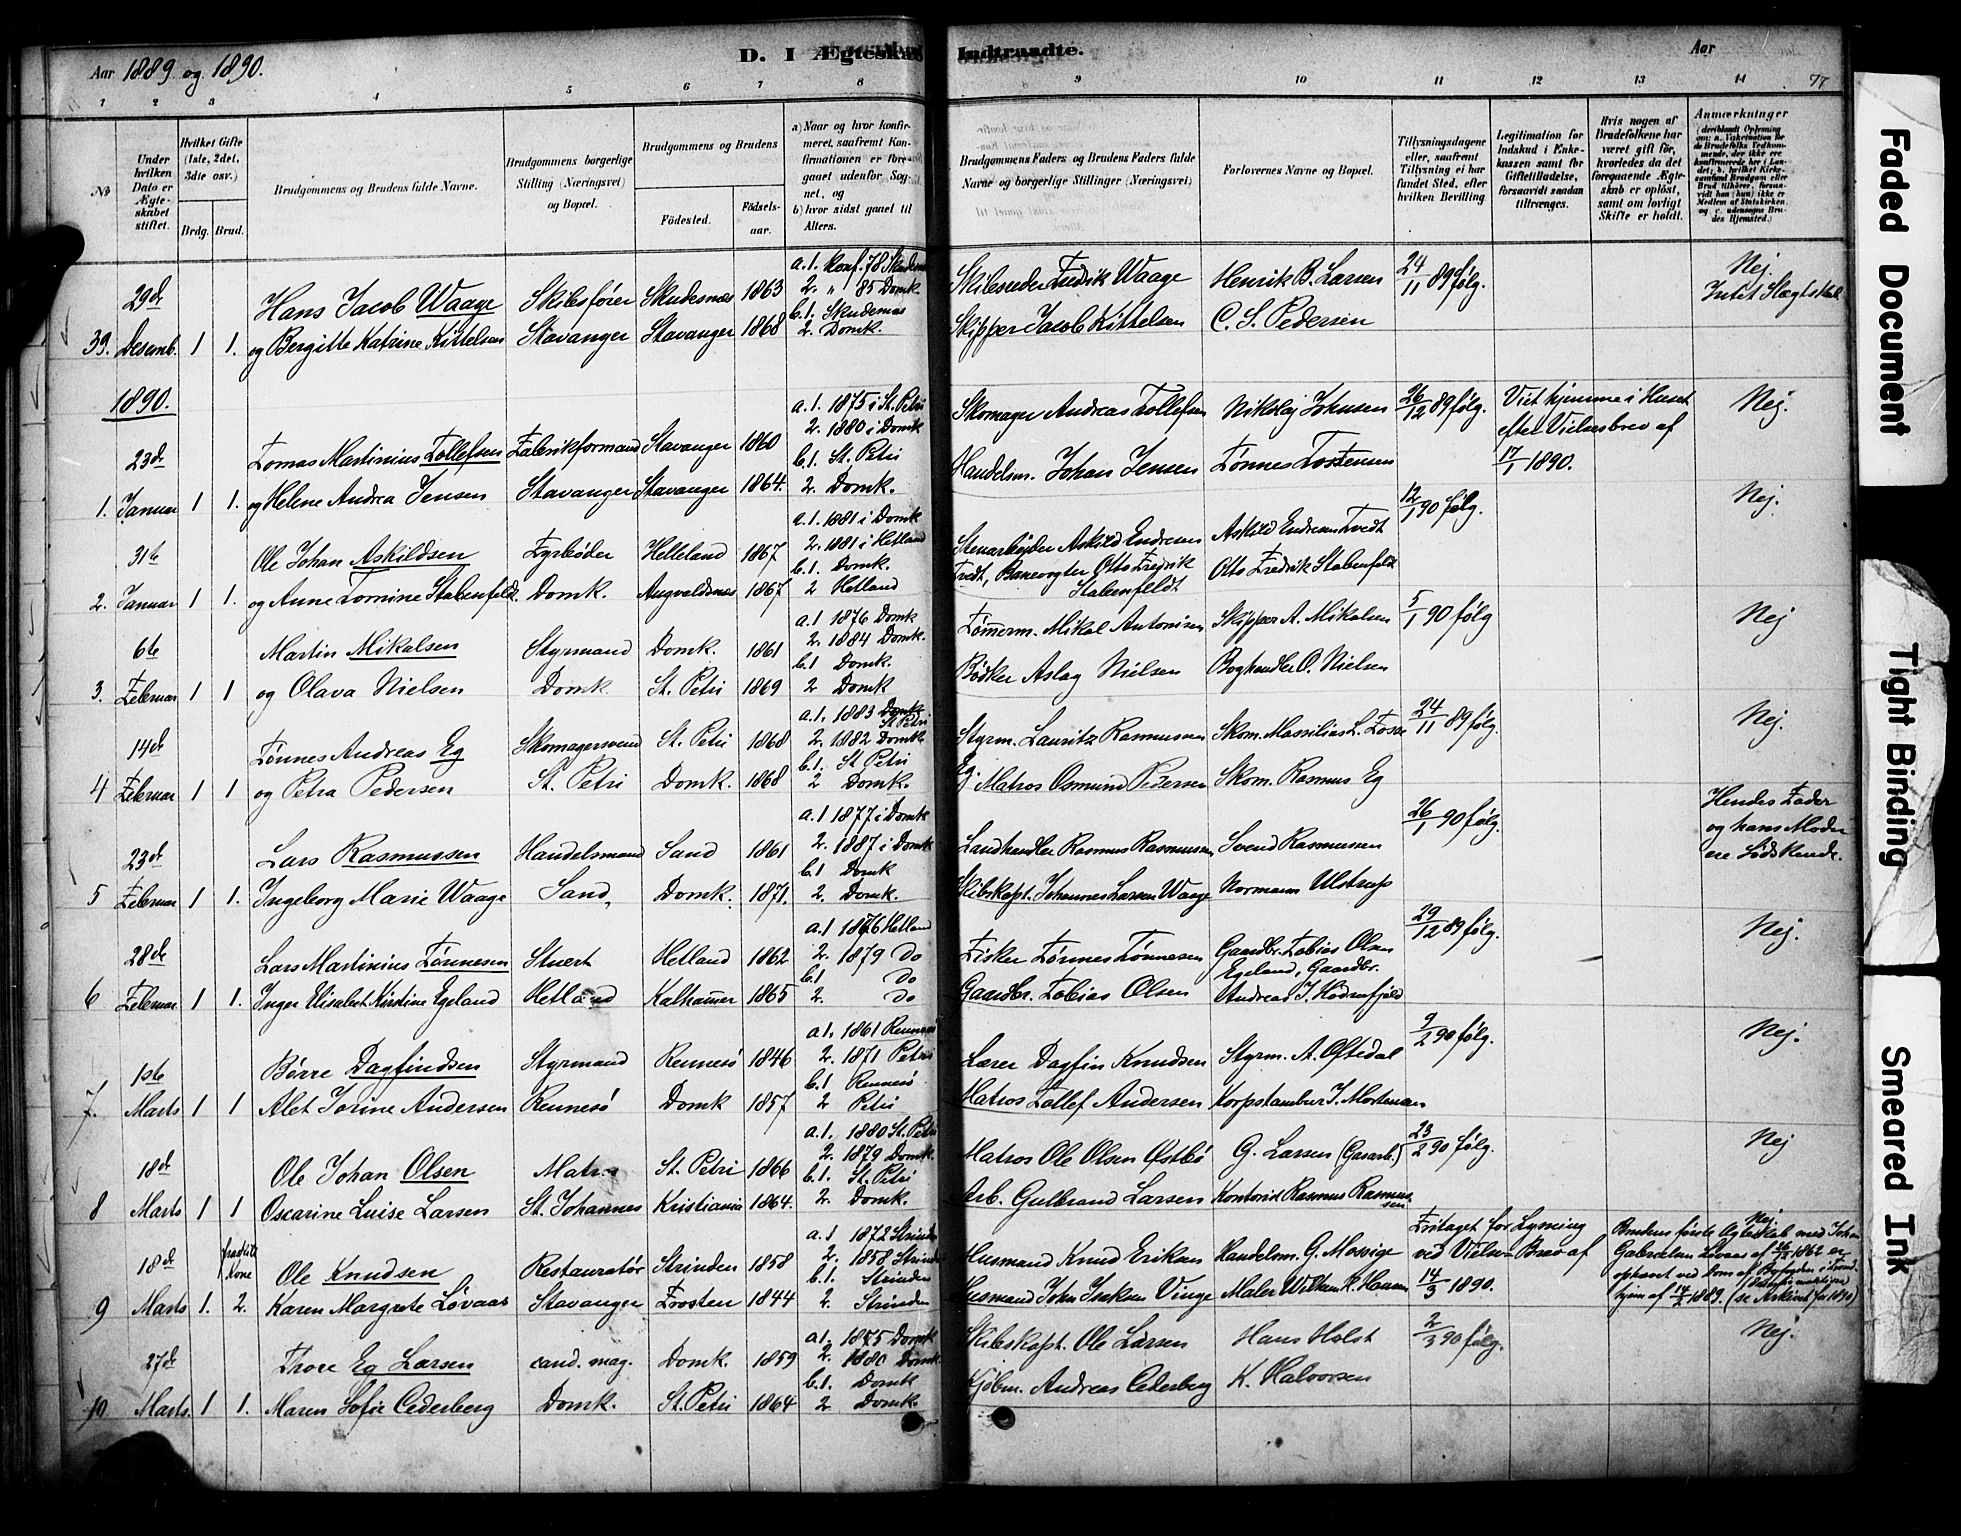 Aar 1889 og 1890.
D. I Ægteskab Indtraadte.
Aar
77
1 2 3 4 5 6 7 8 9 10 11 12 13 14
No
Under hvilken Dato er Ægteskabet stiftet.
Hvilket Gifte (1ste, 2det, 3die osv.)
Brdg. Brud.
Brudgommens og Brudens fulde Navne.
Brudgommens borgerlige Stilling (Næringsvei) og Bopæl.
Brudgommens og Brudens
Födested.
Födselsaar.
a) Naar og hvor konfirmeret, saafremt Konfirmationen er foregaaet udenfor Sognet, og
b) hvor sidst gaaet til Alters.
Brudgommens Faders og Brudens Faders fulde Navne og borgerlige Stillinger (Næringsvei)
Forlovernes Navne og Bopæl.
Tillysningsdagene eller, saafremt Tillysning ei har fundet Sted, efter hvilken Bevilling.
Legitimation for Indskud i Enkekassen samt for Giftetilladelse, forsaavidt saadan tiltrænges.
Hvis nogen af Brudefolkene har været gift för, hvorledes da det foregaaende Ægteskab er oplöst, samt om lovligt Skifte er holdt.
Anmærkninger
39. 29de Desemb. 1 1.
Hans Jacob Waage Skibsfører Skudesnæs 1863
og Bergitte Katrine Kittelsen Stavanger Stavanger 1868
a.1. Konf. 78
2. " 85 Domk.
b.1. Skudesnæs
2. Domk.
Skibsreder Fredrik Waage Henrik B. Larsen 24/11 89 følg.
Skipper Jacob Kittelsen C. S. Pedersen
Nej
Intet Slægtskab
1890.
1. 23de Januar 1 1.
Tomas Martinius Tollefsen Fabrikformand Stavanger 1860
og Helene Andrea Jensen Stavanger Stavanger 1864.
a.1. 1875 i St. Petri
2. 1880 i Domk
b.1. St. Petri
2. Domk.
Skomager Andreas Tollefsen Nikolaj Johnsen 26/12 89 følg.
Handelsm. Johan Jensen Tønnes Tostensen
Viet hjemme i Huset
efter Vielsesbrev af
17/1 1890.
Nej.
2. 31te Januar 1 1.
Ole Johan Askildsen Fyrbøder Helleland 1867
og Anne Tomine Stabenfeldt. Domk. Augvaldsnæs 1867
a.1. 1881 i Domk
2. 1881 i Hetland
b.1. Domk.
2 Hetland
Stenarbejder Askild Endresen Askild Endresen Tvedt 12/1 90 følg.
Tvedt, Banevogter Otto Fredrik Otto Fredrik Stabenfeldt
Stabenfeldt
Nej.
3. 6te Februar 1 1
Martin Mikalsen Styrmand Domk. 1861
og Olava Nielsen Domk St. Petri 1869
a.1 1876 Domk
2. 1884 Domk.
b.1 Domk.
2 Domk
Tømmerm. Mikal Antonisen Skipper A. Mikalsen 5/1 90 følg
Bødker Aslag Nielsen Boghandler O. Nielsen
Nej
4 14de Februar 1 1
Tønnes Andreas Eg Skomagersvend St. Petri 1868
og Petra Pedersen St. Petri Domk. 1868
a.1. 1883 St Petri
2. 1882 Domk
b.1. St Petri
2 Domk.
Styrm. Lauritz Rasmussen Skom. Massilias L. Fosse 24/11 89 følg.
Eg. Matros Osmund Pedersen Skom. Rasmus Eg
Nej.
5 23de Februar 1 1.
Lars Rasmussen Handelsmand Sand 1861
Ingeborg Marie Waage Sand, Domk. 1871.
a.1 1877 i Domk
2. 1887 i Domk
b.1 Domk
2. Domk.
Landhandler Rasmus Rasmussen Svend Rasmussen 26/1 90 følg.
Skibskapt. Johannes Larsen Waage Normann Ulstrup
Hendes Fader
og hans Moder
ere Sødskende.
6 28de Februar 1 1.
Lars Martinius Tønnesen Stuert Hetland 1862
Inger Elisabet Kirstine Egeland Hetland Kalhammer 1865
a.1 1876 Hetland
2. 1879 Do
b.1 Do
2. Do
Fisker Tønnes Tønnesen Gaardbr. Tobias Olsen 29/12 89 følg.
Egeland, Gaardbr.
Gaardbr. Tobias Olsen Andreas J. Hodnefjeld
Nej.
7. 1ste Marts 1 1
Børre Dagfindsen Styrmand Rennesø 1846
Alet Jorine Andersen Rennesø Domk 1857
a.1. 1861 Rennesø
2. 1871 Petri
b.1 Rennesø
2 Petri
Lærer Dagfin Knudsen Styrm. A. Oftedal 9/2 90 følg.
Matros Tollef Andersen Korpstambur J. Mortensen
Nej.
8 18de Marts 1 1
Ole Johan Olsen Matros St. Petri 1866
Oscarine Luise Larsen St. Johannes Kristiania 1864.
a.1. 1880 St. Petri
2. 1879 Domk.
b.1. St. Petri
2. Domk.
Matros Ole Olsen Østbø G. Larsen (Gasarb.) 23/2 90 følg.
Arb. Gulbrand Larsen Kontorist Rasmus Rasmussen
Nej
9 18de Marts 1. 2.
fraskilt Kone
Ole Knudsen Restauratør Strinden 1858
Karen Margrete Løvaas Stavanger Frosten 1844
a.1 1872 Strinden
2. 1858 Strinden
b.1. Strinden
2. Strinden
Husmand Knud Eriksen Handelsm. G. Mossige Fritaget for Lysning
ved Vielses-Brev af
Husmand John Isaksen Vinge Maler Wilhelm R. Hansen 14/3 1890.
Nej.
Brudens første Ægteskab med Johan
Gabrielsen Løvaas af 26/12 1862 er
ophævet ved Dom af Byfogden i Trondhjem
af 14/2 1889. (se Arkivet for 1890)
10 27de Marts. 1 1.
Thore Eg Larsen cand. mag. Domk. 1859
Maren Sofie Cederberg Domk. St. Petri 1864
a1. 1875 Domk
2. 1880 Domk.
b.1. Domk
2 Domk.
Skibskapt. Ole Larsen Hans Holst 2/3 90 følg.
Kjøbm. Andreas Cederberg K. Halvorsen
Nej.
Faded Document
Tight Binding
Smeared Ink